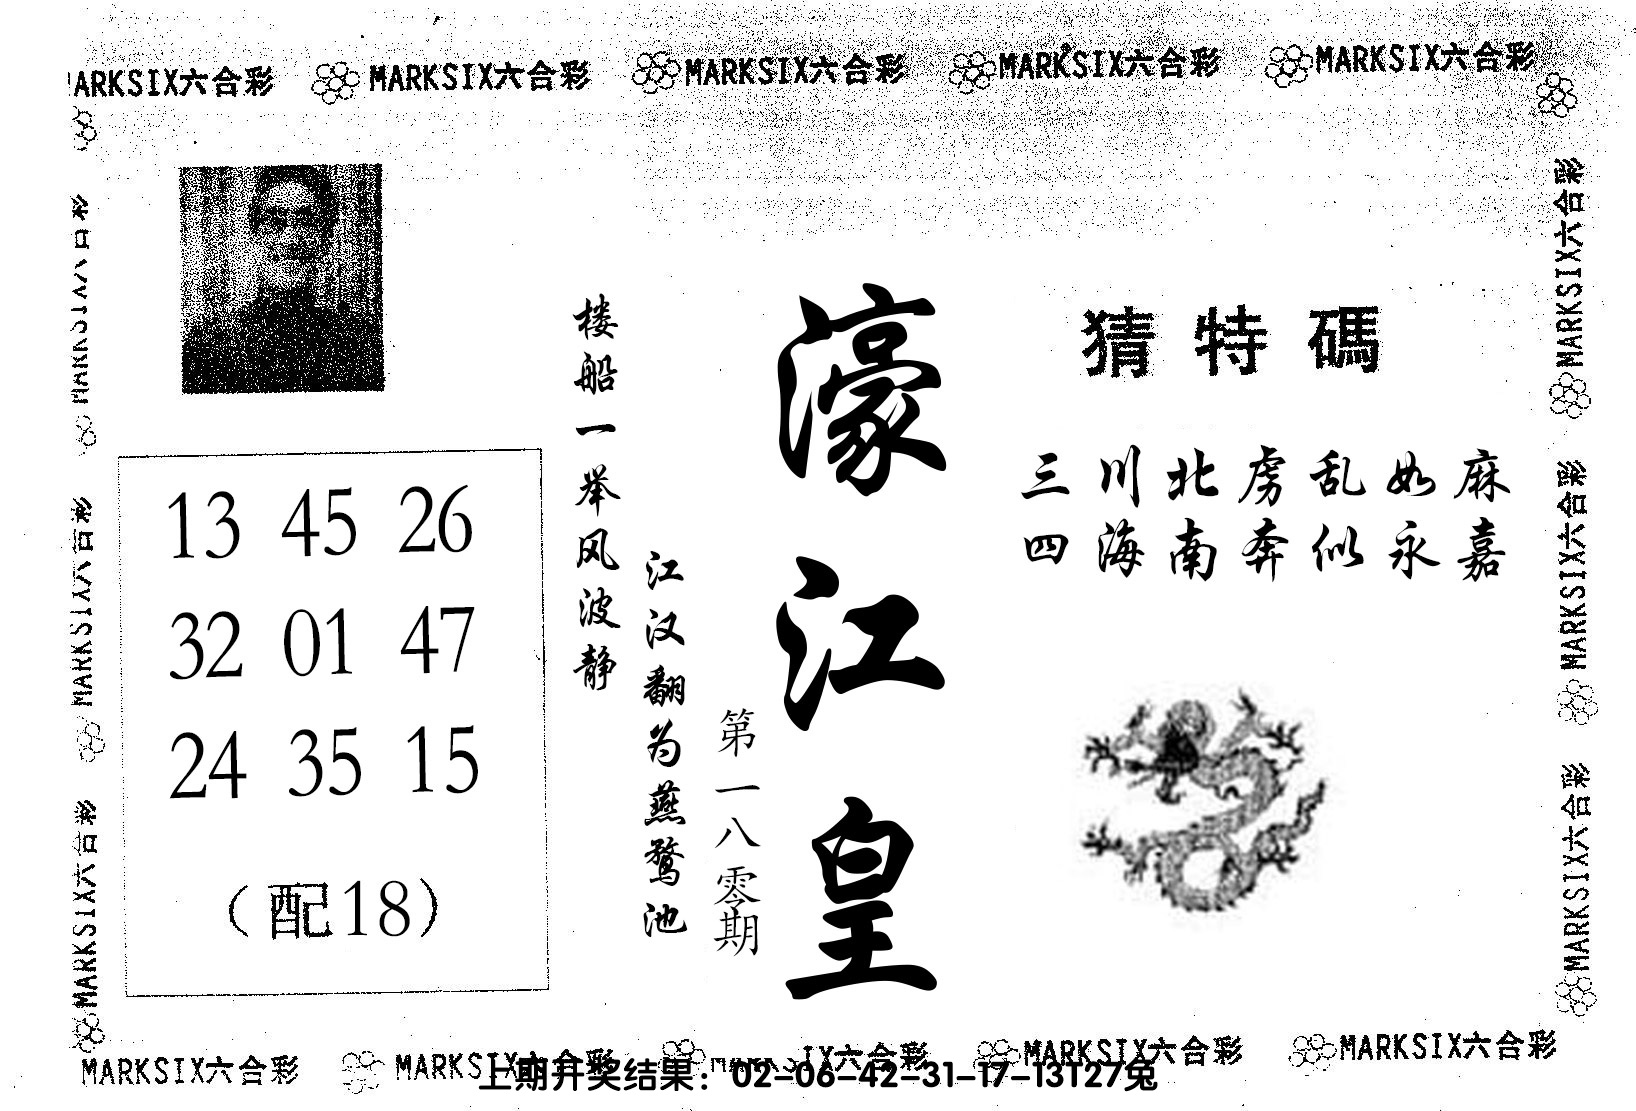 MARKSIX六合彩 MARKSIX六合彩 MARKSIX六合彩 MARKSIX六合彩
MARKSIX六合彩
MARKSIX六合彩
MARKSIX六合彩
MARKSIX六合彩
MARKSIX六合彩
MARKSIX六合彩
猜特碼
三川北虏乱如麻
四海南奔似永嘉
濠江皇
第一八零期
楼船一举风波静
江汉翻为燕鹜池
13 45 26
32 01 47
24 35 15
（配18）
MARKSIX六合彩 MARKSIX六合彩 IX六合彩 MARKSIX六合彩 MARKSIX六合彩
上期开奖结果：02-06-42-31-17-13T27兔